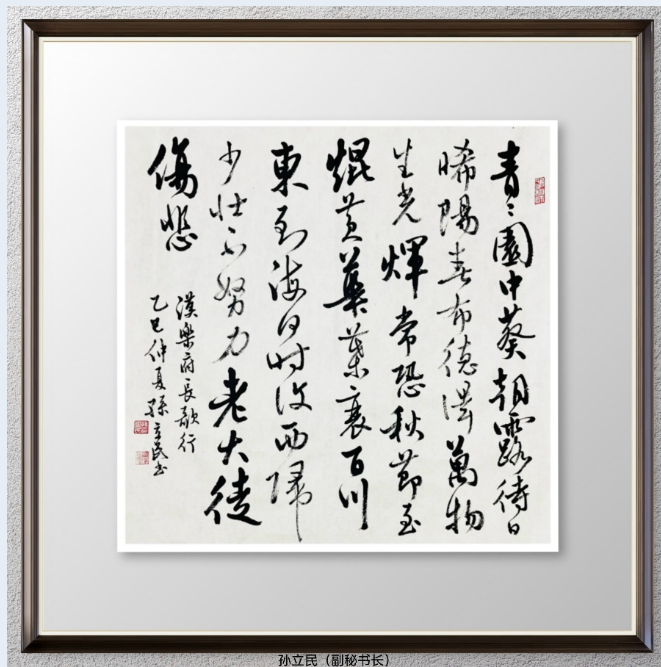 青〻園中葵朝露待日
晞陽春布德澤萬物
生光輝常恐秋節至
焜黃華葉衰百川
東到海何時復西歸
少壯不努力老大徒
傷悲
漢樂府長歌行
乙巳仲夏孫立民書
孙立民（副秘书长）